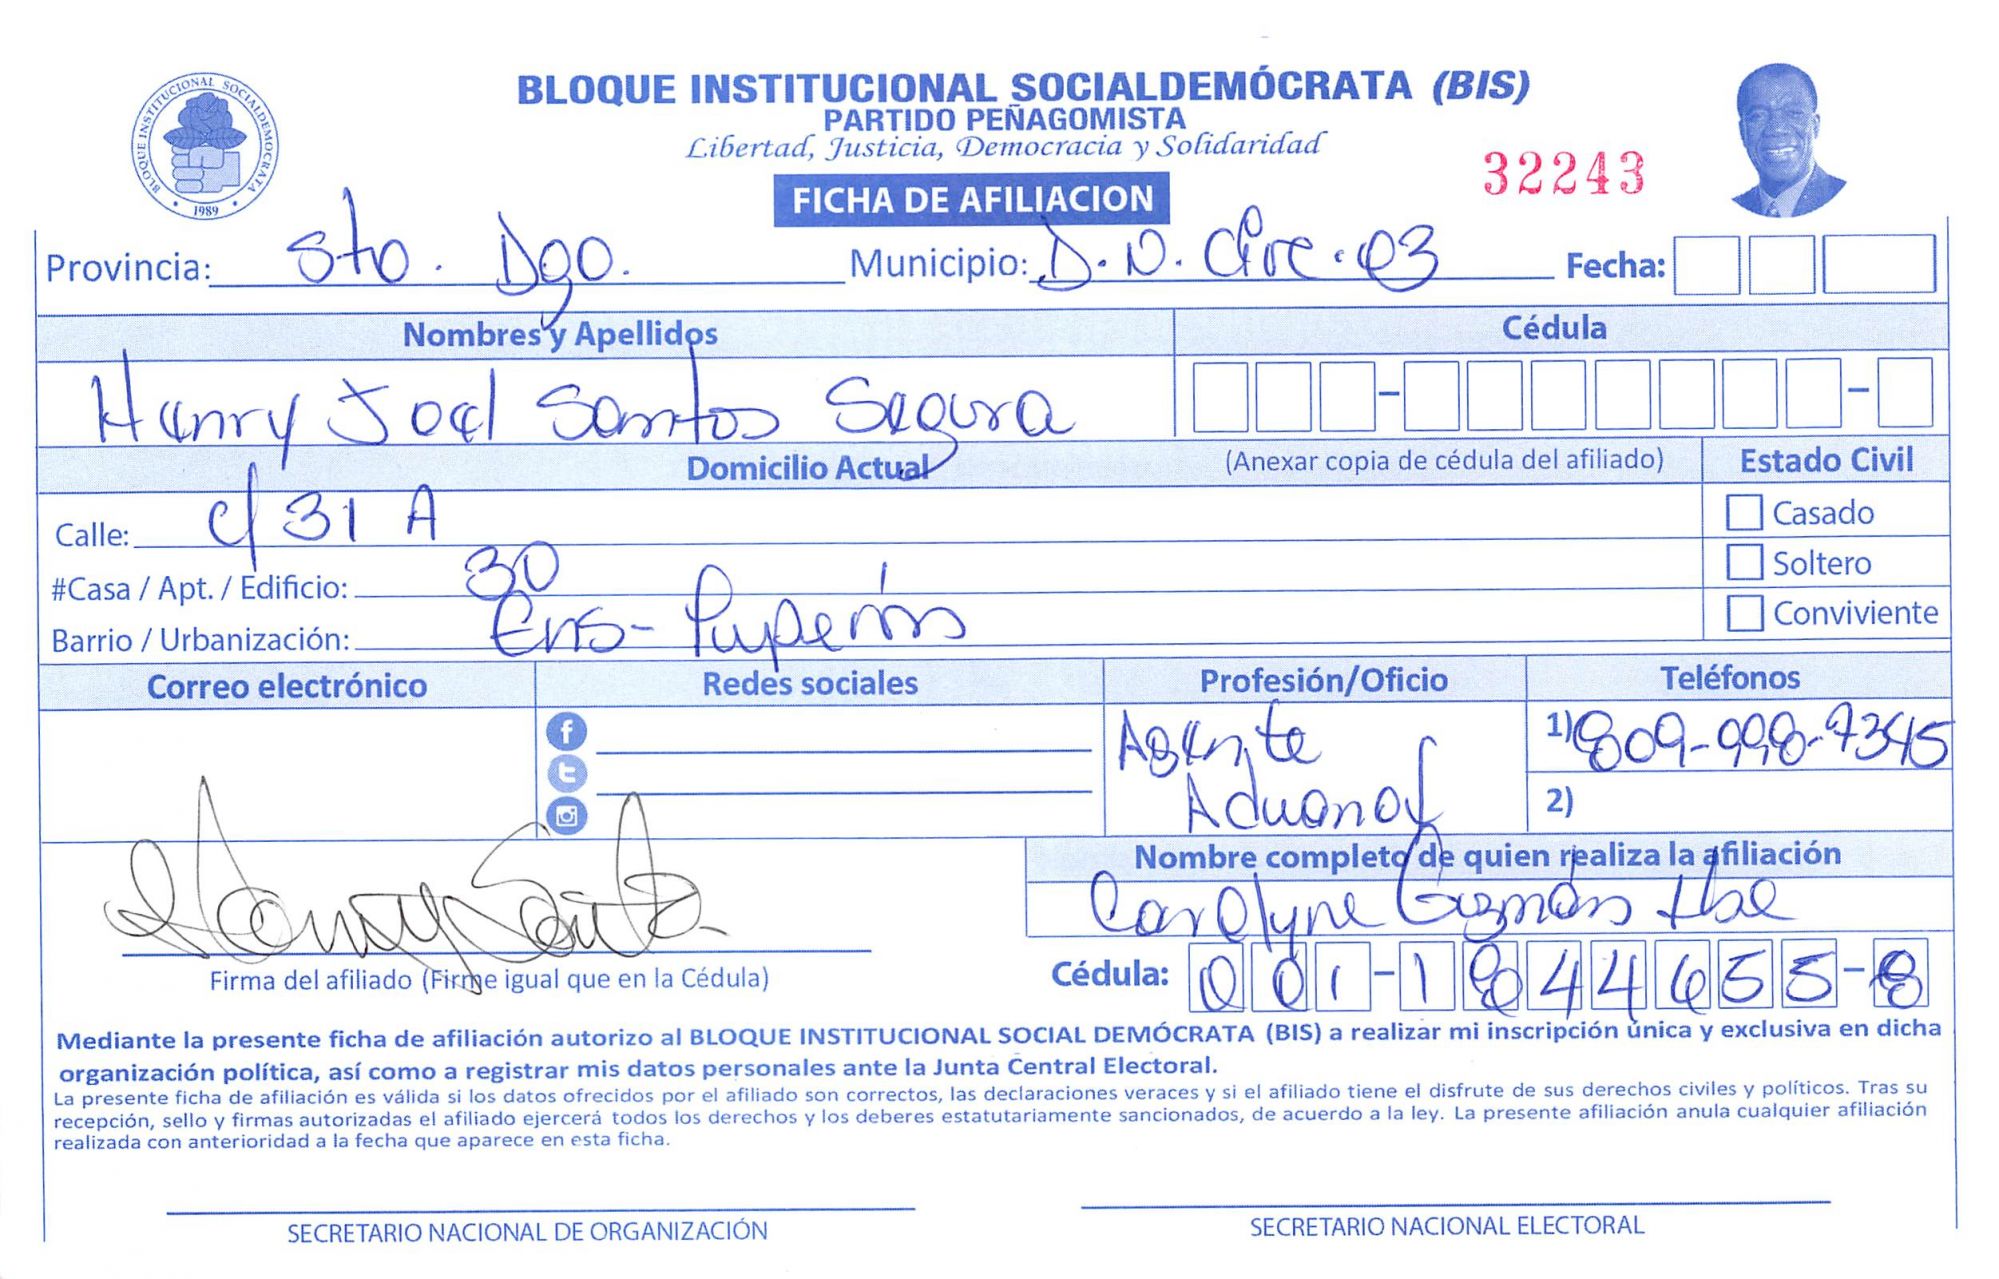 BLOQUE INSTITUCIONAL SOCIALDEMÓCRATA (BIS)
PARTIDO PEÑAGOMISTA
Libertad, Justicia, Democracia y Solidaridad
BLOQUE INSTITUCIONAL SOCIALDEMOCRATA
1989
32243
FICHA DE AFILIACION
Provincia: Sto. Dgo. Municipio: D.N. Circ. 03 Fecha:
Nombres y Apellidos Cédula
Henry Joel Santos Segura
Domicilio Actual (Anexar copia de cédula del afiliado) Estado Civil
Calle: c/ 31 A Casado
#Casa / Apt. / Edificio: 30 Soltero
Barrio / Urbanización: Ens- Conviviente
Correo electrónico Redes sociales Profesión/Oficio Teléfonos
Agente Aduanal
1) 809-998-7345
2)
Nombre completo de quien realiza la afiliación
Carolyne Guzmán
Firma del afiliado (Firme igual que en la Cédula)
Cédula: 001-1844655-8
Mediante la presente ficha de afiliación autorizo al BLOQUE INSTITUCIONAL SOCIAL DEMÓCRATA (BIS) a realizar mi inscripción única y exclusiva en dicha
organización política, así como a registrar mis datos personales ante la Junta Central Electoral.
La presente ficha de afiliación es válida si los datos ofrecidos por el afiliado son correctos, las declaraciones veraces y si el afiliado tiene el disfrute de sus derechos civiles y políticos. Tras su
recepción, sello y firmas autorizadas el afiliado ejercerá todos los derechos y los deberes estatutariamente sancionados, de acuerdo a la ley. La presente afiliación anula cualquier afiliación
realizada con anterioridad a la fecha que aparece en esta ficha.
SECRETARIO NACIONAL DE ORGANIZACIÓN SECRETARIO NACIONAL ELECTORAL